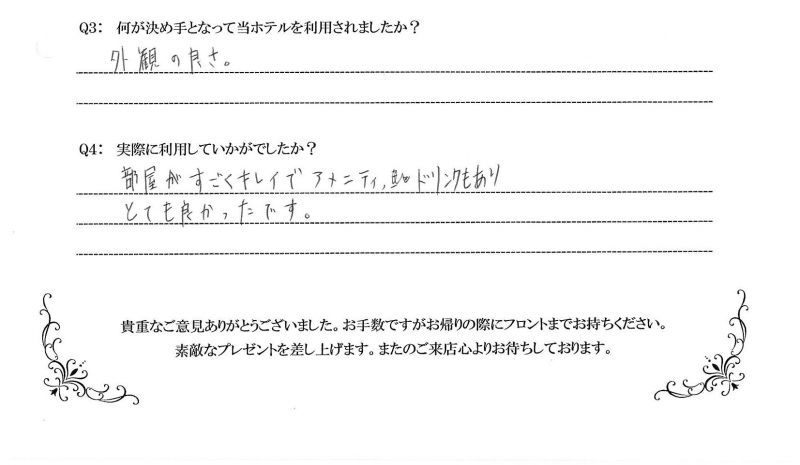 Q3: 何が決め手となって当ホテルを利用されましたか？
外観の良さ。
Q4: 実際に利用していかがでしたか？
部屋がすごくキレイでアメニティ、ドリンクもあり
とても良かったです。
貴重なご意見ありがとうございました。お手数ですがお帰りの際にフロントまでお持ちください。
素敵なプレゼントを差し上げます。またのご来店心よりお待ちしております。